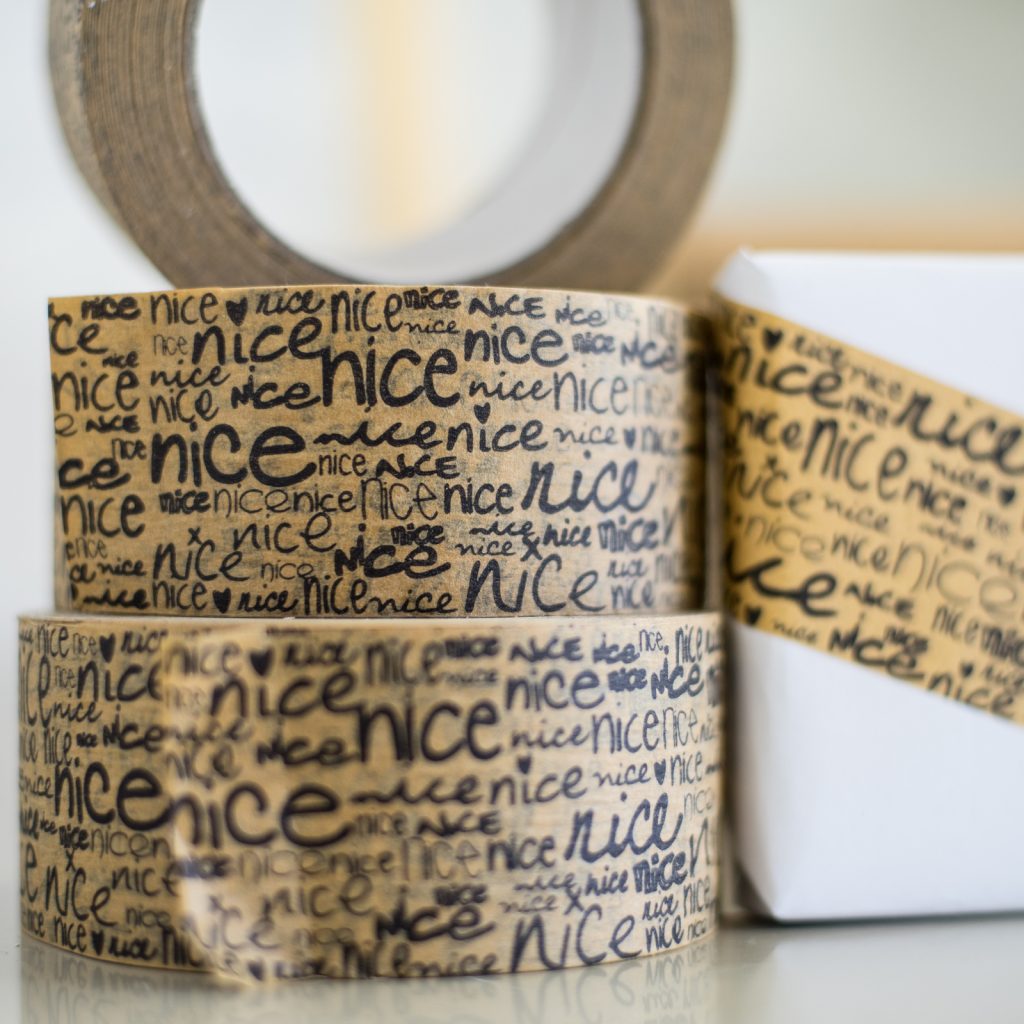 nice ♥ nice nice nice NiCE nice
ce nice nice nice nice nice nice nice
nice nice nice nice nice nice nice
nice nice nice
nice nice nice nice nice ♥
ce nice NiCE nice
nice nice nice nice nice nice nice
nice nice nice nice nice nice nice
nice nice nice nice nice nice
nice nice ♥ nice nice nice nice nice
nice nice ♥ nice nice nice nice NiCE nice nice nice
nice nice nice nice nice nice nice nice
nice nice nice nice nice nice nice
nice nice nice nice nice ♥ nice
nice nice nice NiCE nice
nice nice nice nice nice nice
nice nice nice nice nice nice nice
nice nice nice nice nice nice
nice nice ♥ nice nice nice nice
♥ nice nice
nice nice nice
nice nice nice nice ♥
nice nice nice
nice nice nice
nice nice nice
nice nice nice
nice nice